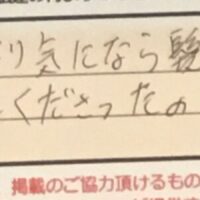 り気になら
くださったの
掲載のご協力頂けるもの